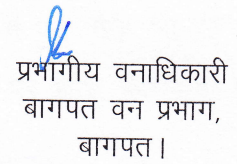 प्रभागीय वनाधिकारी
बागपत वन प्रभाग,
बागपत।